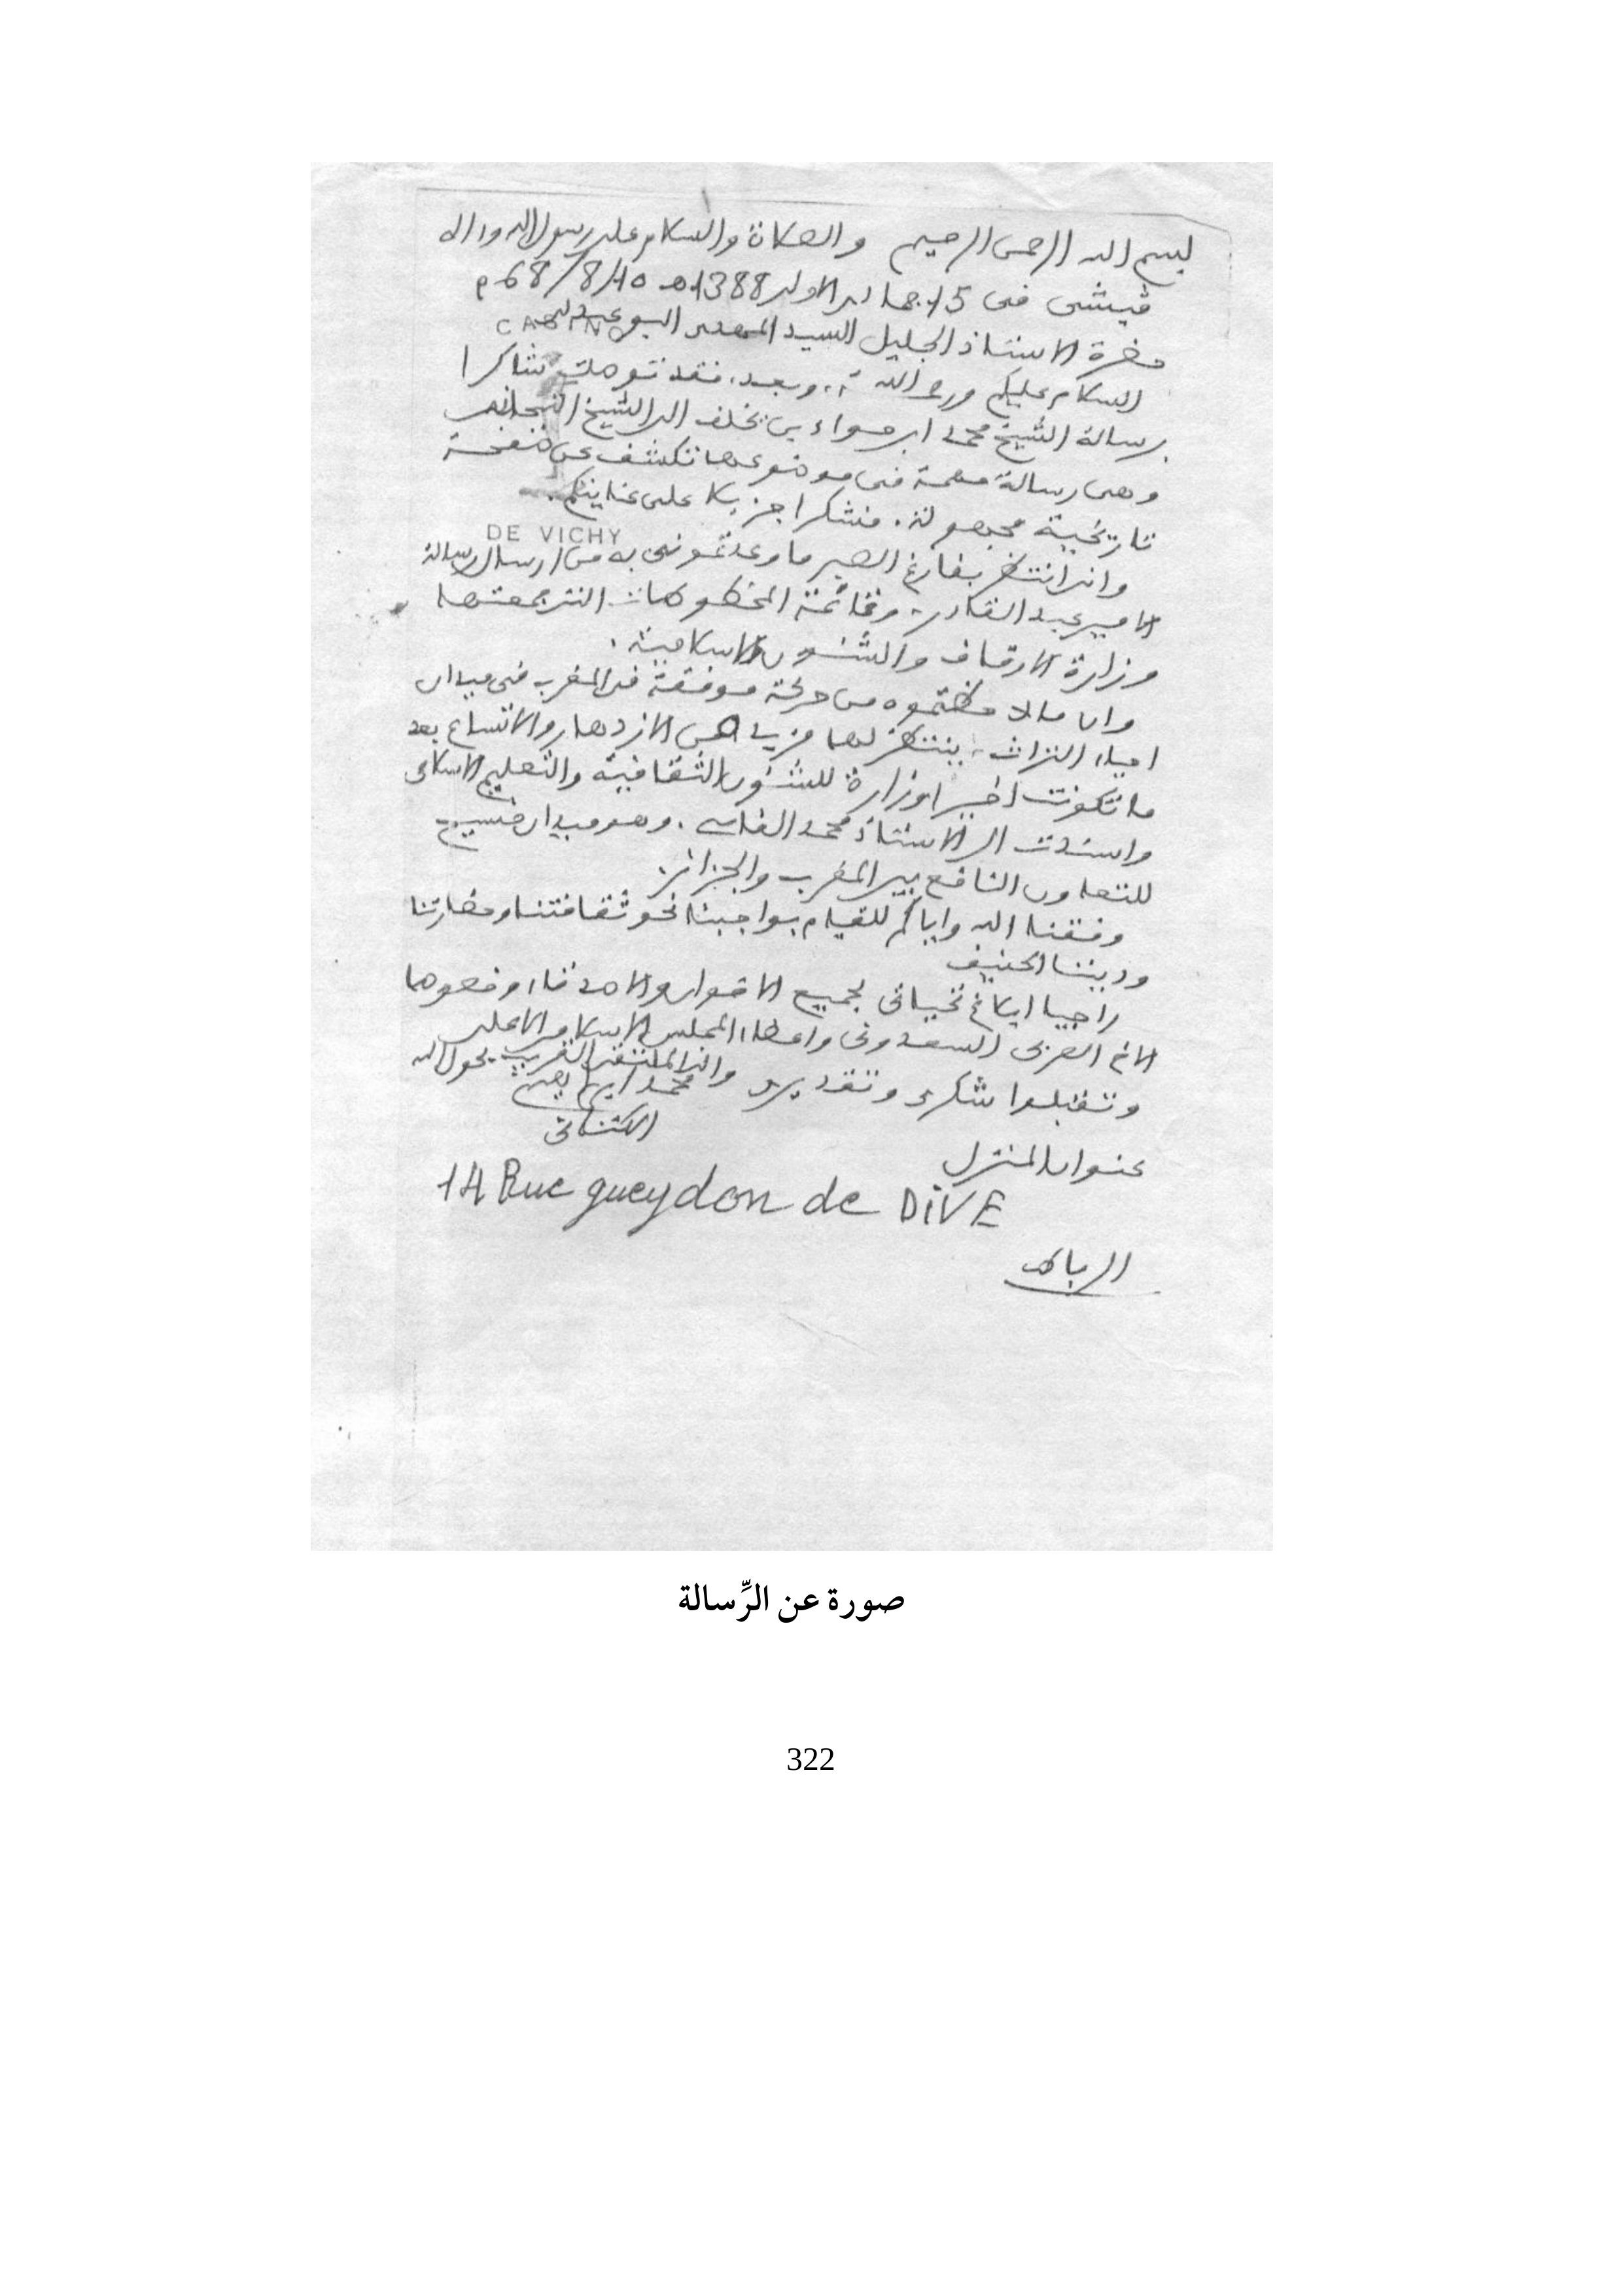 بسم الله الرحمن الرحيم والصلاة والسلام على رسول الله وءاله
فيشي في 15 جمادى الاولى 1388 هـ 10/8/68 م
CASINO
حضرة الاستاذ الجليل السيد المهدي البوعبدلي
السلام عليكم ورحمة الله، وبعد، فقد توصلت شاكرا
برسالة الشيخ محمد بن يخلف الى الشيخ التيجاني
وهي رسالة مهمة في موضوعها تكشف عن صفحة
تاريخية مجهولة. فشكرا جزيلا على عنايتكم.
DE VICHY
واني انتظر بفارغ الصبر ما وعدتموني به من ارسال رسالة
الامير عبد القادر، وقائمة المخطوطات التي جمعتها
وزارة الاوقاف والشئون الاسلامية.
وان ما لاحظتموه من حركة موفقة في المغرب في ميدان
احياء التراث، ينتظر لها مزيد من الازدهار والاتساع بعد
ما تكونت اخيرا وزارة للشئون الثقافية والتعليم الاسلامي
واسندت الى الاستاذ محمد الفاسي. وهو ميدان فسيح
للتعاون النافع بين المغرب والجزائر.
وفقنا الله واياكم للقيام بواجبنا نحو ثقافتنا وحضارتنا
وديننا الحنيف
راجيا ابلاغ تحياتي لجميع الاخوان والاصدقاء وخصوصا
الاخ العربي السعدوني واعضاء المجلس الاسلامي الاعلى
وتقبلوا شكري وتقديري والى الملتقى القريب بحول الله
محمد ابراهيم
الكتاني
عنوان المنزل
14 Rue gueydon de DiVE
الرباط
صورة عن الرِّسالة
322